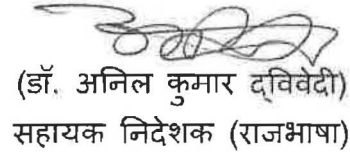 (डॉ. अनिल कुमार द्विवेदी)
सहायक निदेशक (राजभाषा)